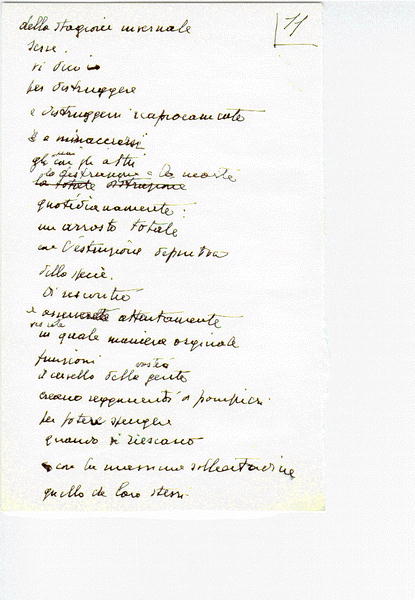 11
della stagione invernale
serre.
vi dico
per distruggere
e distruggersi reciprocamente
e a minacciarsi
gli uni gli altri
la distruzione e la morte
la totale distruzione
quotidianamente:
un arrosto totale
con l'estinzione definitiva
della specie.
Di
e attentamente
in quale maniera originale
funzioni
il cervello della gente
creano reggimenti di pompieri
per potere spengere
quando vi riescano
con la massima sollecitudine
quello che loro stessi